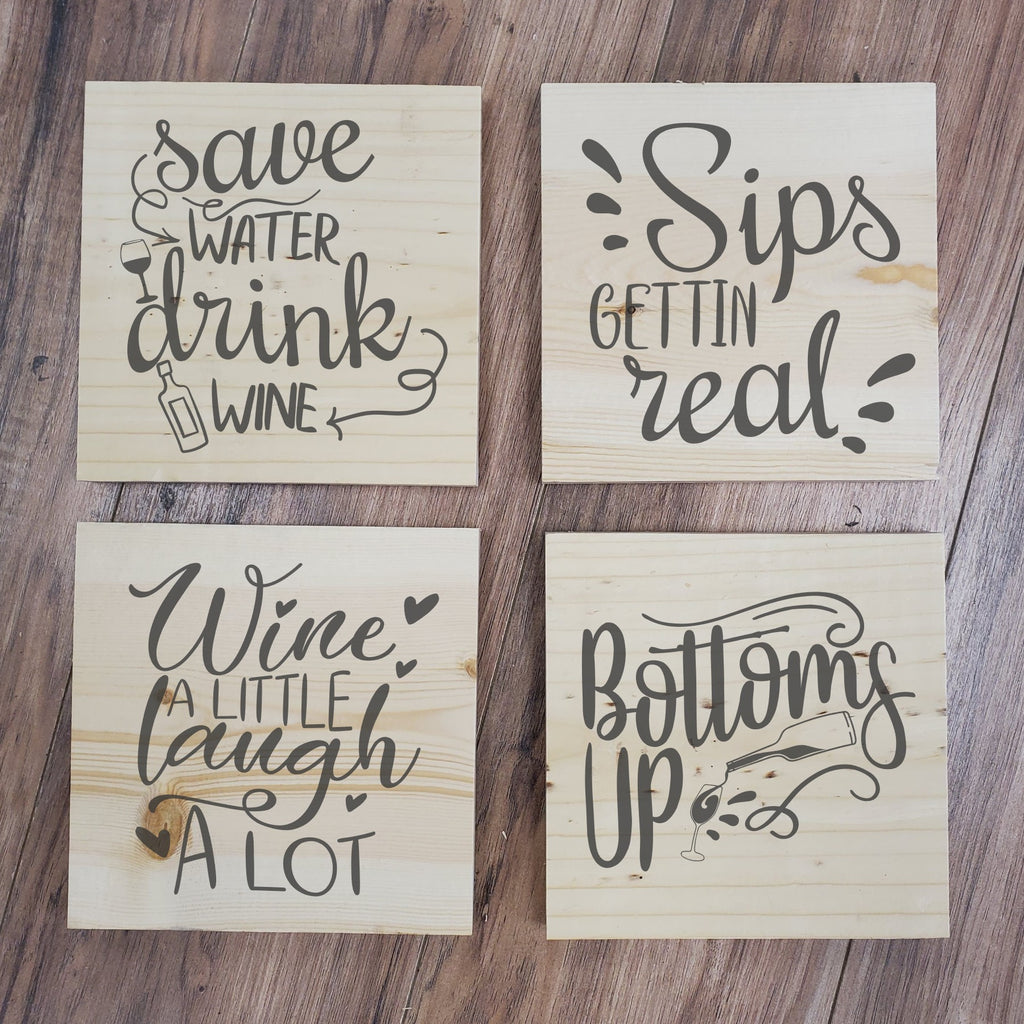 save
WATER
drink
WINE
Sips
GETTIN
real
Wine
A LITTLE
laugh
A LOT
Bottoms
UP